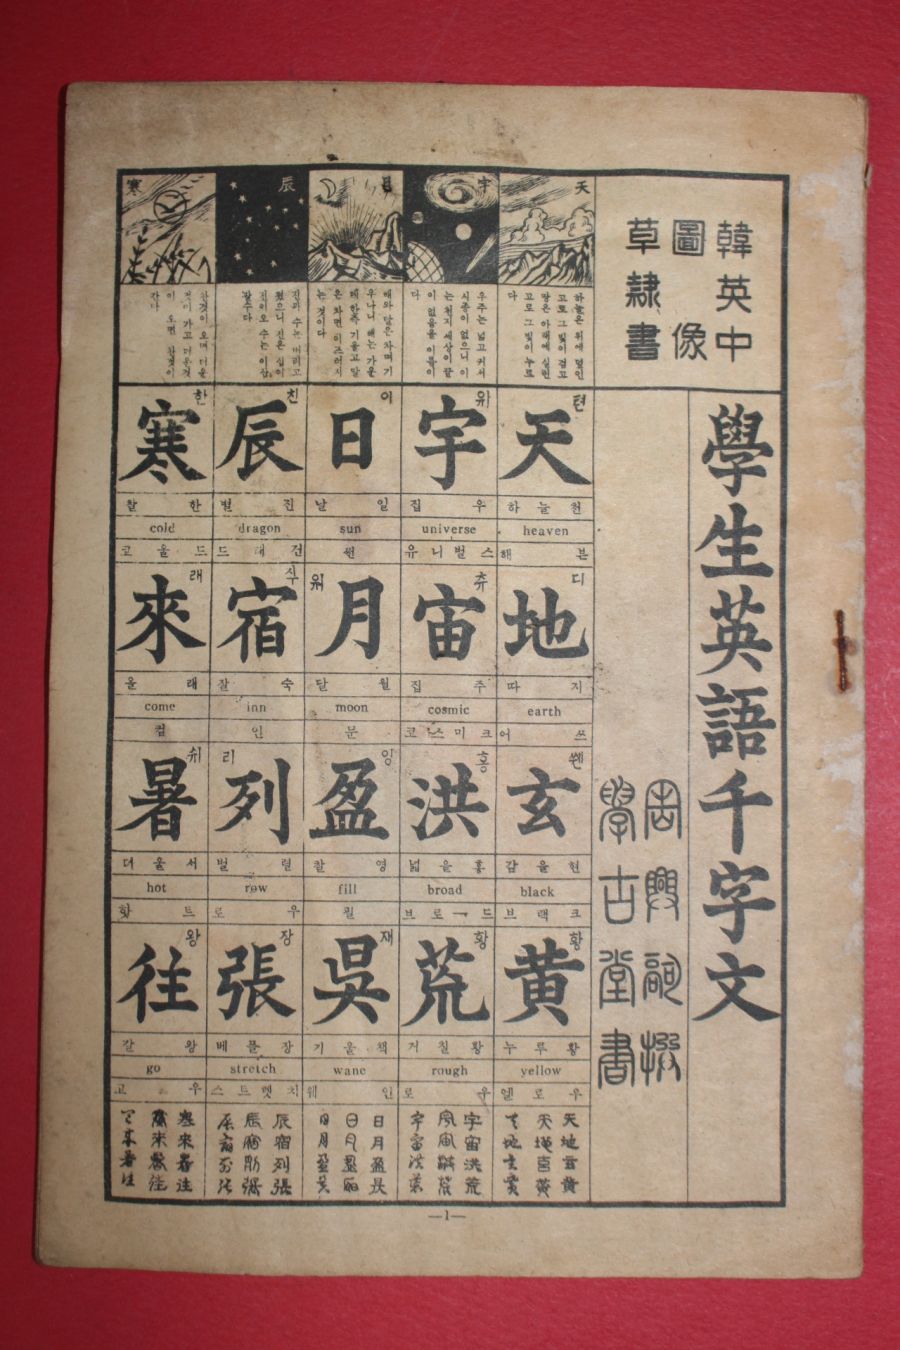 韓英中
圖像
草隷書
學生英語千字文
周興嗣撰
學古堂書
天
宇
日
辰
寒
하늘은 위에 덮인
고로 그 빛이 검고
땅은 아래에 실린
고로 그 빛이 누르
다
우주는 넓고 커서
시종이 없으니 이
는 천지 세상이 끝
이 없음을 이름이
다
해와 달은 차며 기
우나니 해는 가운
데 한즉 기울고 달
은 차면 이즈러지
는 것이다
찬것이 오며 더운
것이 가고 더운것
이 오면 찬것이
간다
天
텬
하늘 천
heaven
해븐
地
디
따 지
earth
어쓰
玄
쉔
감을 현
black
브랙크
黄
황
누루 황
yellow
옐로우
宇
위
집 우
universe
유니벌스
宙
쥬
집 주
cosmic
코스미크
洪
홍
넓을 홍
broad
브로ー드
荒
황
거칠 황
rough
로우
日
이
날 일
sun
썬
月
워
달 월
moon
문
盈
잉
찰 영
fill
필
吳
재
기울 책
wane
웨인
辰
친
별 진
dragon
드래건
宿
수
잘 숙
inn
인
列
리
벌 렬
row
로우
張
장
베플 장
stretch
스트렛치
寒
한
찰 한
cold
고울드
來
래
올 래
come
컴
暑
쉬
더울 서
hot
핫트
往
왕
갈 왕
go
고우
天地玄黄
宇宙洪荒
日月盈吳
辰宿列張
寒來暑往
—1—